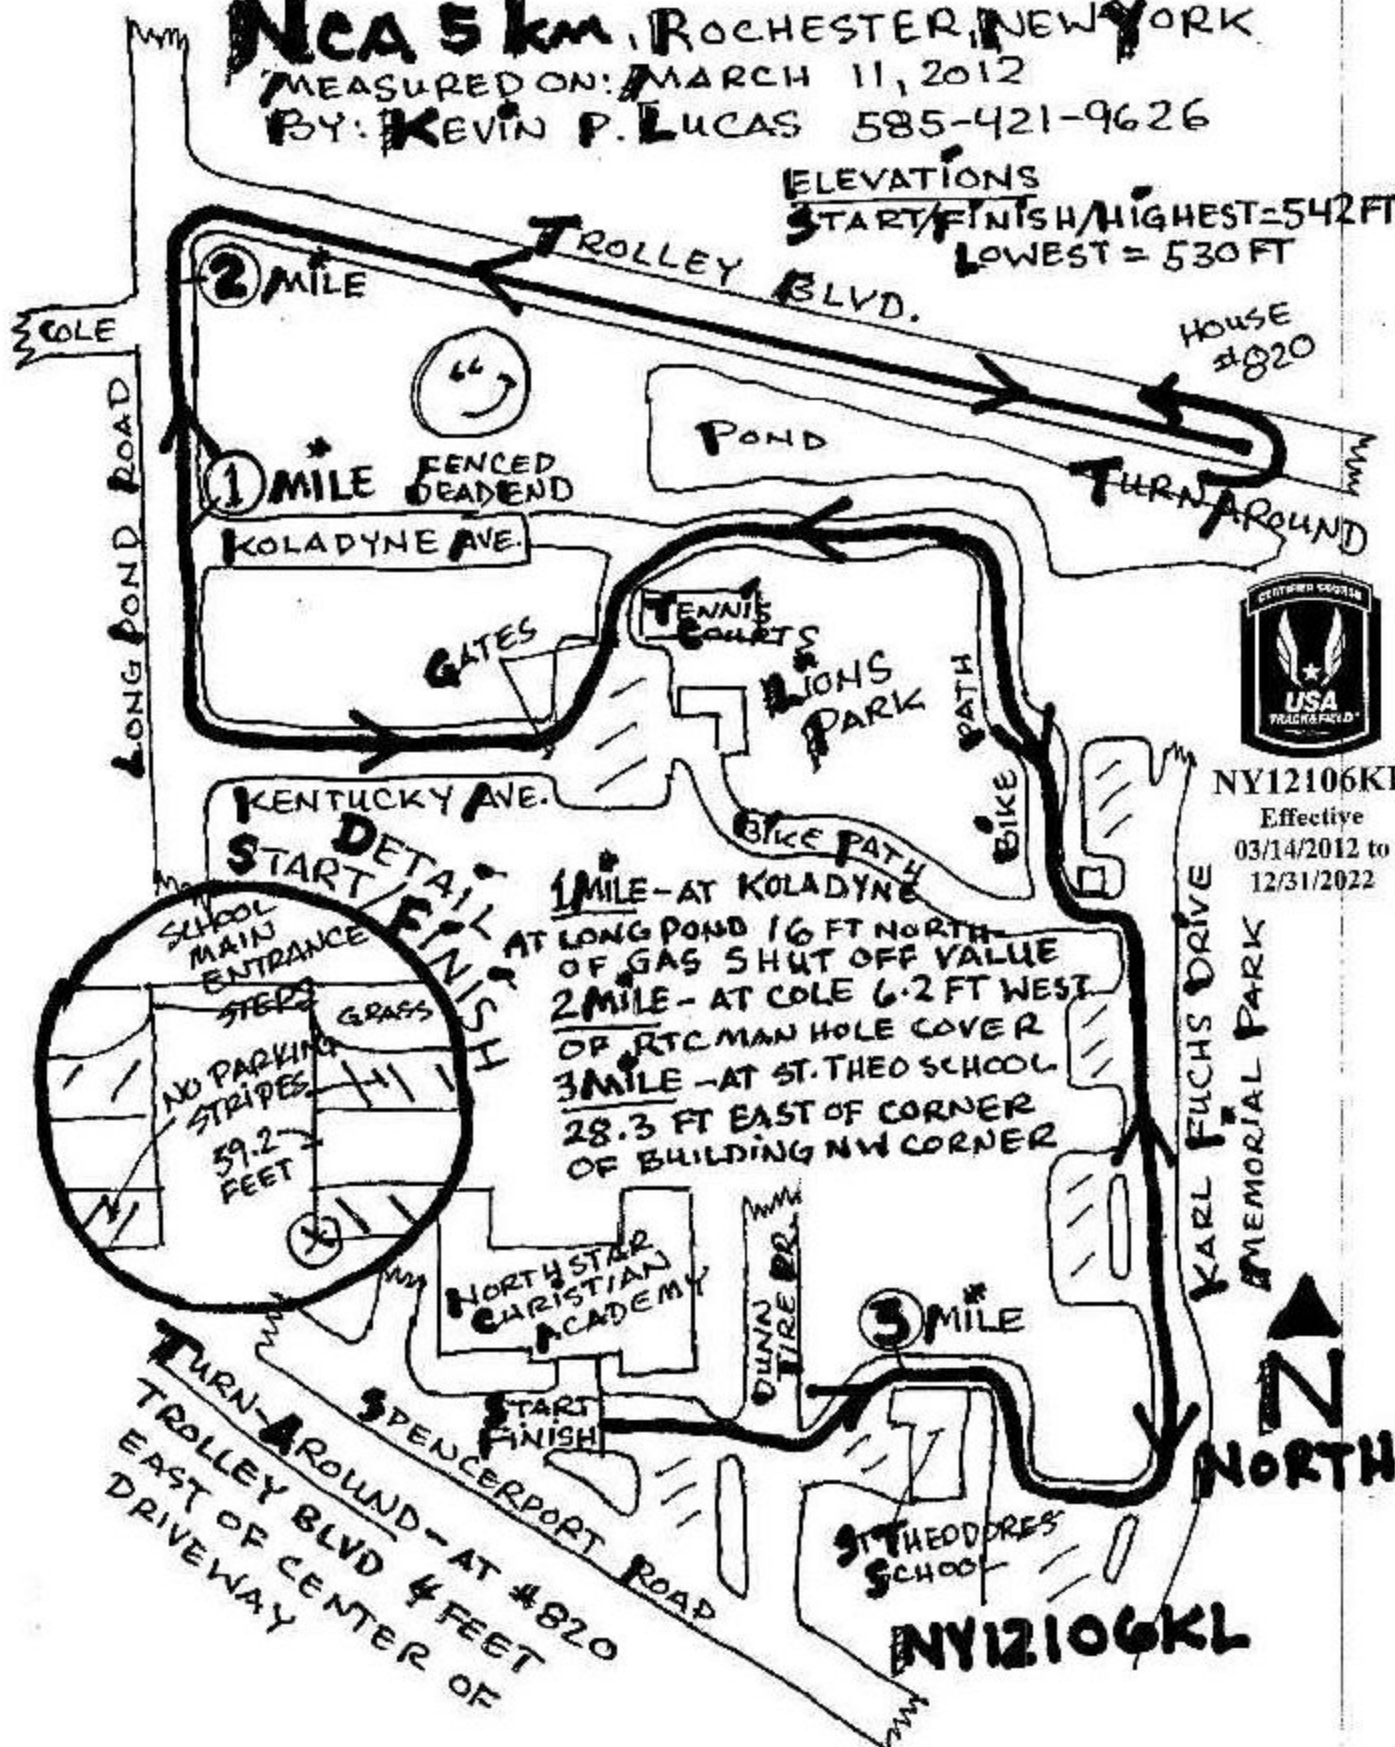 NCA 5 km, ROCHESTER, NEW YORK
MEASURED ON: MARCH 11, 2012
BY: KEVIN P. LUCAS 585-421-9626
ELEVATIONS
START/FINISH/HIGHEST=542FT
LOWEST = 530 FT
TROLLEY BLVD.
2 MILE
COLE
HOUSE
#820
POND
1 MILE
FENCED
DEADEND
TURN AROUND
KOLADYNE AVE.
LONG POND ROAD
TENNIS
COURTS
GATES
LIONS
PARK
BIKE PATH
CERTIFIED COURSE
USA
TRACK & FIELD
NY12106KL
Effective
03/14/2012 to
12/31/2022
KENTUCKY AVE.
BIKE PATH
DETAIL
START/FINISH
SCHOOL
MAIN
ENTRANCE
STEPS
GRASS
NO PARKING
STRIPES
59.2
FEET
X
1 MILE - AT KOLADYNE
AT LONG POND 16 FT NORTH
OF GAS SHUT OFF VALUE
2 MILE - AT COLE 6.2 FT WEST
OF RTC MAN HOLE COVER
3 MILE - AT ST. THEO SCHOOL
28.3 FT EAST OF CORNER
OF BUILDING NW CORNER
KARL FUCHS DRIVE
MEMORIAL PARK
NORTHSTAR
CHRISTIAN
ACADEMY
DUNN
TIRE DR.
3 MILE
START
FINISH
SPENCERPORT ROAD
N
NORTH
ST THEODORES
SCHOOL
TURN-AROUND - AT #820
TROLLEY BLVD 4 FEET
EAST OF CENTER OF
DRIVEWAY
NY12106KL